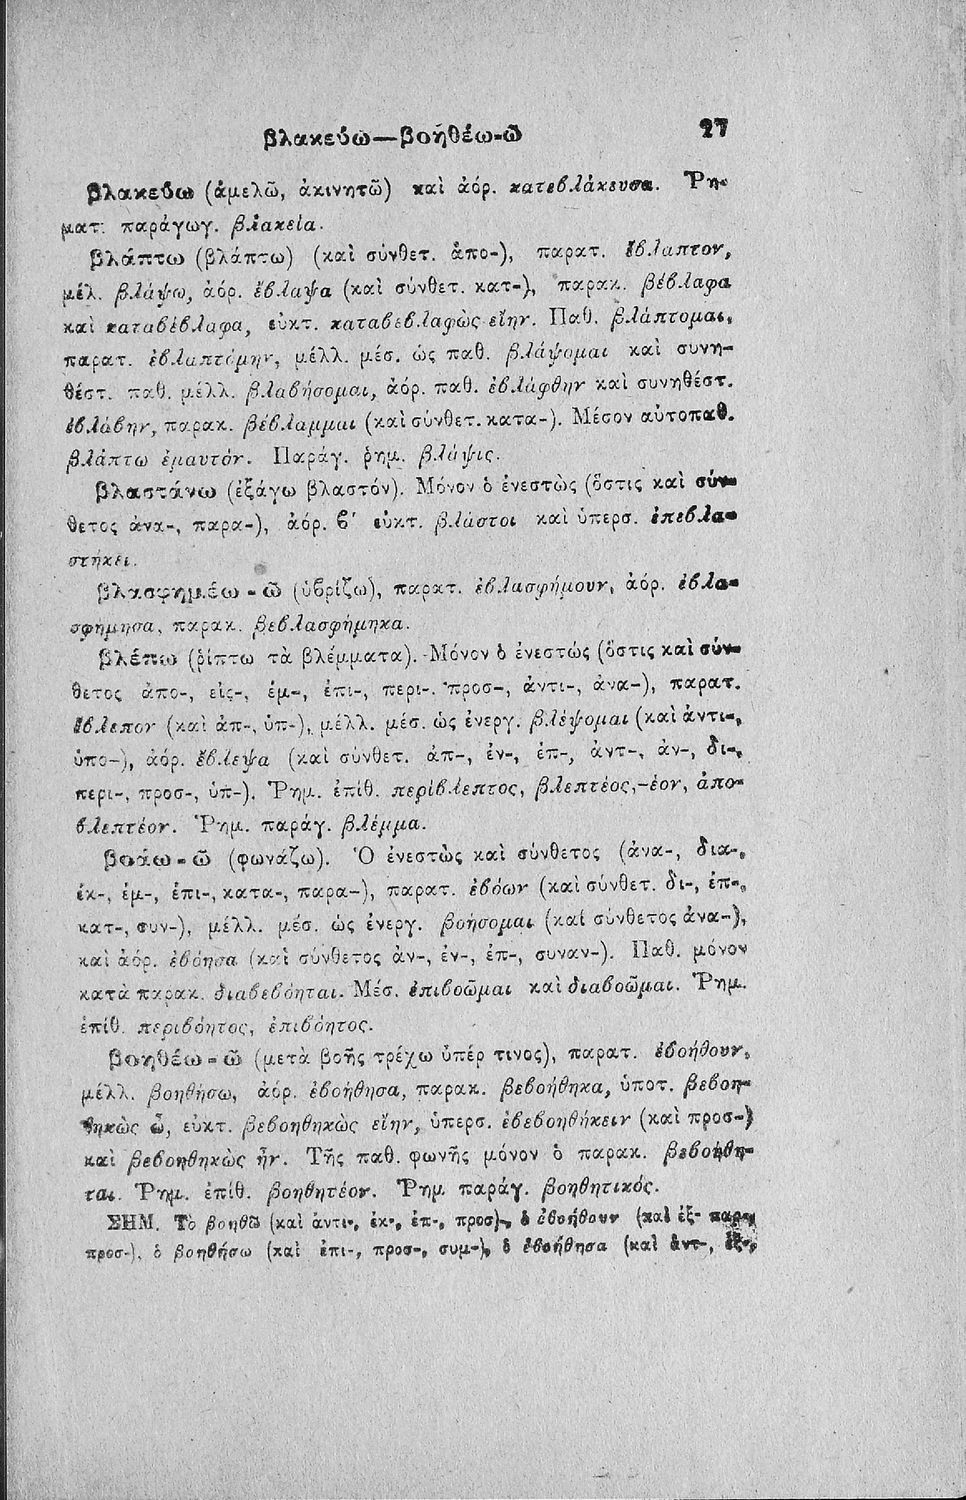 βλακεύω—βοηθέω-ῶ 27
βλακεύω (ἀμελῶ, ἀκινητῶ) καὶ ἀόρ. κατεβλάκευσα. Ῥη-
ματ. παράγωγ. βλακεία.
βλάπτω (βλάπτω) (καὶ σύνθετ. ἀπο-), παρατ. ἔβλαπτον,
μέλ. βλάψω, ἀόρ. ἔβλαψα (καὶ σύνθετ. κατ-), παρακ. βέβλαφα
καὶ καταβέβλαφα, εὐκτ. καταβεβλαφὼς εἴην. Παθ. βλάπτομαι,
παρατ. ἐβλαπτόμην, μέλλ. μέσ. ὡς παθ. βλάψομαι καὶ συνη-
θέστ. παθ. μέλλ. βλαβήσομαι, ἀόρ. παθ. ἐβλάφθην καὶ συνηθέστ.
ἐβλάβην, παρακ. βέβλαμμαι (καὶ σύνθετ. κατα-). Μέσον αὐτοπαθ.
βλάπτω ἐμαυτόν. Παράγ. ῥημ. βλάψις.
βλαστάνω (ἐξάγω βλαστόν). Μόνον ὁ ἐνεστὼς (ὅστις καὶ σύν-
θετος ἀνα-, παρα-), ἀόρ. β′ εὐκτ. βλάστοι καὶ ὑπερσ. ἐπεβλα-
στήκει.
βλασφημέω-ῶ (ὑβρίζω), παρατ. ἐβλασφήμουν, ἀόρ. ἐβλα-
σφήμησα, παρακ. βεβλασφήμηκα.
βλέπω (ῥίπτω τὰ βλέμματα). Μόνον ὁ ἐνεστώς (ὅστις καὶ σύν-
θετος ἀπο-, εἰς-, ἐμ-, ἐπι-, περι-, προσ-, ἀντι-, ἀνα-), παρατ.
ἔβλεπον (καὶ ἀπ-, ὑπ-), μέλλ. μέσ. ὡς ἐνεργ. βλέψομαι (καὶ ἀντι-,
ὑπο-), ἀόρ. ἔβλεψα (καὶ σύνθετ. ἀπ-, ἐν-, ἐπ-, ἀντ-, ἀν-, δι-,
περι-, προσ-, ὑπ-). Ῥημ. ἐπίθ. περίβλεπτος, βλεπτέος,-έον, ἀπο-
βλεπτέον. Ῥημ. παράγ. βλέμμα.
βοάω-ῶ (φωνάζω). Ὁ ἐνεστὼς καὶ σύνθετος (ἀνα-, δια-,
ἐκ-, ἐμ-, ἐπι-, κατα-, παρα-), παρατ. ἐβόων (καὶ σύνθετ. δι-, ἐπ-,
κατ-, συν-), μέλλ. μέσ. ὡς ἐνεργ. βοήσομαι (καὶ σύνθετος ἀνα-),
καὶ ἀόρ. ἐβόησα (καὶ σύνθετος ἀν-, ἐν-, ἐπ-, συναν-). Παθ. μόνον
κατὰ παρακ. διαβεβόηται. Μέσ. ἐπιβοῶμαι καὶ διαβοῶμαι. Ῥημ.
ἐπίθ. περιβόητος, ἐπιβόητος.
βοηθέω-ῶ (μετὰ βοῆς τρέχω ὑπέρ τινος), παρατ. ἐβοήθουν,
μέλλ. βοηθήσω, ἀόρ. ἐβοήθησα, παρακ. βεβοήθηκα, ὑποτ. βεβοη-
θηκὼς ὦ, εὐκτ. βεβοηθηκὼς εἴην, ὑπερσ. ἐβεβοηθήκειν (καὶ προσ-)
καὶ βεβοηθηκὼς ἦν. Τῆς παθ. φωνῆς μόνον ὁ παρακ. βεβοήθη-
ται. Ῥημ. ἐπίθ. βοηθητέον. Ῥημ. παράγ. βοηθητικός.
ΣΗΜ. Τὸ βοηθῶ (καὶ ἀντι-, ἐκ-, ἐπ-, προσ)-, ὁ ἐβοήθουν (καὶ ἐξ- παρ-,
προσ-), ὁ βοηθήσω (καὶ ἐπι-, προσ-, συμ-), ὁ ἐβοήθησα (καὶ ἀντ-, ἐξ-,